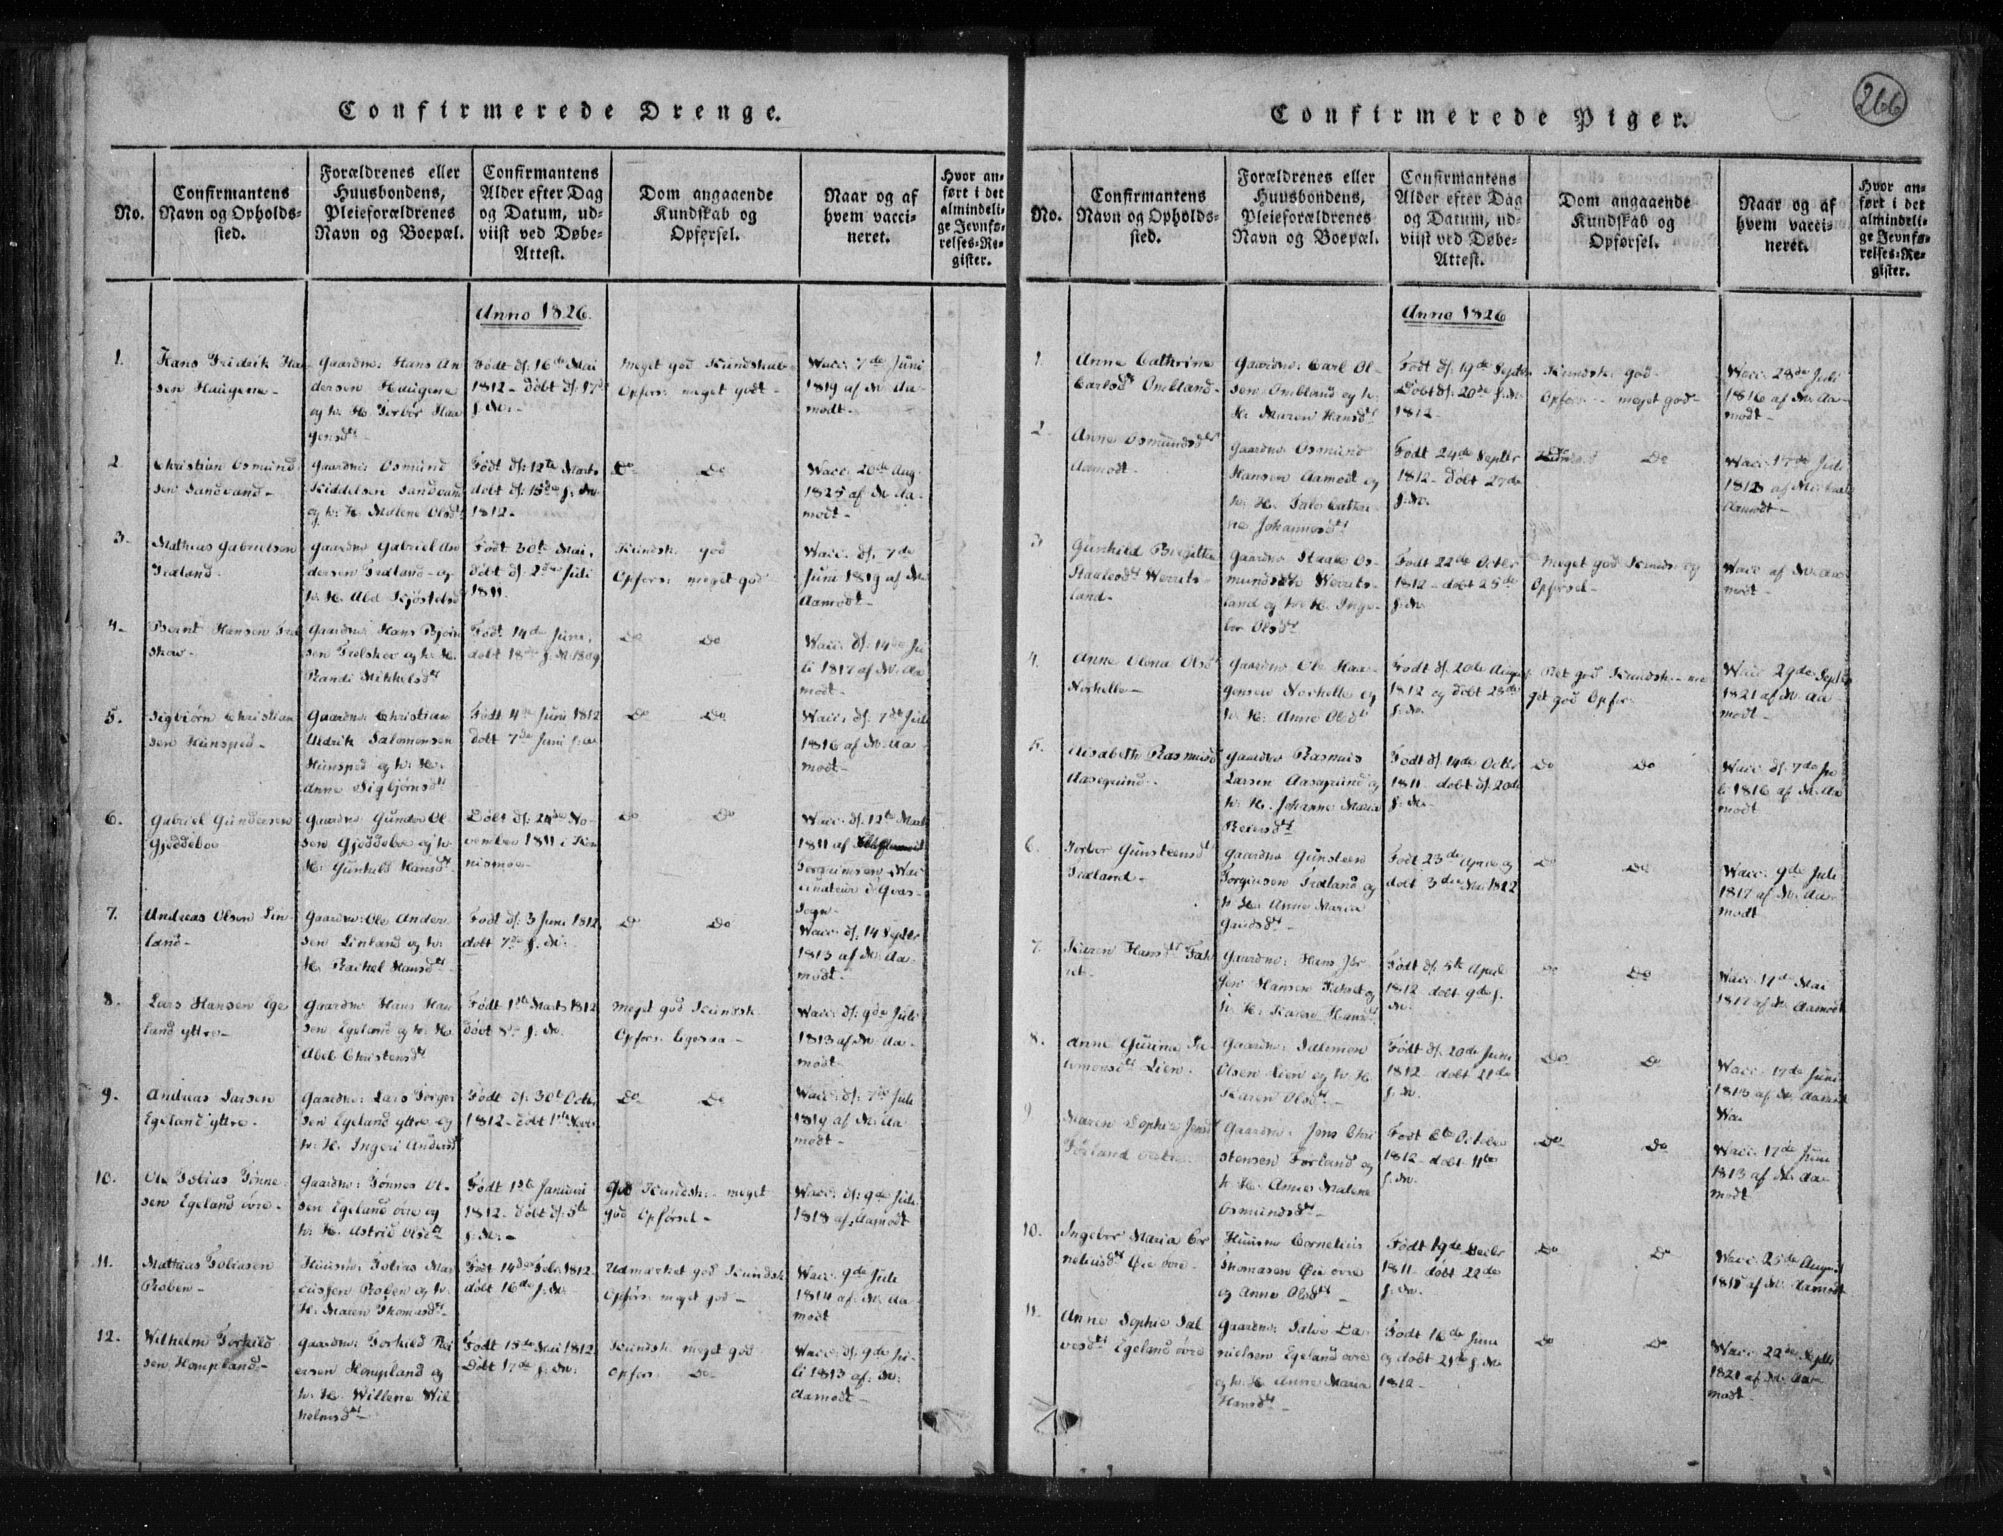 266
Confirmerede Drenge.
No.
Confirmantens
Navn og Opholds-
sted.
Forældrenes eller
Huusbondens,
Pleieforældrenes
Navn og Boepæl.
Confirmantens
Alder efter Dag
og Datum, ud-
viist ved Døbe-
Attest.
Dom angaaende
Kundskab og
Opførsel.
Naar og af
hvem vacci-
neret.
Hvor an-
ført i det
almindeli-
ge Jevnfø-
relses-Re-
gister.
Anno 1826.
1.
Hans Fridrik Han
sen Haugene-
Gaardm: Hans An
dersen Haugene
og h. H. Torbor Haa
gensdt-
Født d: 16de Mai
1812- døbt d: 17de
s. M.-
Meget god Kundskab
Opførs: meget godt-
Wacc: 7de Juni
1819 af M. Aa-
modt-
2.
Christian Osmund
sen Sandvand-
Gaardm: Osmund
Kiddelsen Sandvand
og h. H. Malene Olsdt
Født d: 12te Marts
døbt d: 15de s. M.
1812-
Do Do
Wacc: 20de Aug
1825 af M. Aa-
modt-
3.
Mathias Gabrielsen
Fedland-
Gaardm Gabriel An
dersen Fedland- og
h. H. Abel Kjøstelsd
Født 30te Mai,
døbt d: 2den Juli
1811.
Kundsk: god
Opførs: meget god
Wacc: d: 7de
Juni 1819 af M.
Aamodt-
4.
Bernt Hansen
Gaardm: Hans Bjørn
sen og h. H.
Randi Mikkelsdt
Født 14de Juni,
døbt 18de s. M. 1809
Do Do
Wacc: d: 14de Ju
li 1817 af M. Aa
modt-
5.
Sigbjørn Christian
sen Hunsped-
Gaardm: Christian
Uldrik Salomonsen
Hunsped og h. H.
Anne Sigbjørnsdt
Født 4de Juni 1812
døbt 7de Juni s. M.
Do Do
Wacc: d: 7de Juli
1816 af M. Aa-
modt-
6.
Gabriel Gundersen
Gjeddeboe
Gaardm: Gunder Ol-
sen Gjeddeboe og h.
H. Gunhild Hansdt
Døbt d: 24de No-
vember 1811 i
Do Do
Wacc: d: 12te Marts
1811 af
Torgrimsen Wac
cinateur i
Sogn-
7.
Andreas Olsen Lin-
land-
Gaardm: Ole Ander
sen Linland og h.
H. Rachel Hansdt
Født d: 3 Juni 1812,
døbt 7de s. M.
Do Do
Wacc: d: 14 Septbr
1813 af M. Aa-
modt-
8.
Lars Hansen Ege
land yttre-
Gaardm: Hans Han
sen Egeland og h. H.
Abel Christensdt
Født 1ste Marts 1812
døbt 8de s. M.
Meget god Kundsk:
Opførs: ligesaa-
Wacc: d: 9de Juli
1813 af M. Aa-
modt-
9.
Andreas Larsen
Egeland yttre.
Gaardm: Lars Torger
sen Egeland yttre og
h. H. Ingeri Andersd
Født d: 30te Octbr
1812- døbt 1ste Novbr
Do Do
Wacc: d: 7de Juli
1819 af M. Aa-
modt-
10.
Ole Tobias Tønne-
sen Egeland øvre-
Gaardm: Tønnes Ol-
sen Egeland øvre og
h. H. Astrid Olsdt
Født 1ste Januari
1812- døbt d: 5te
s. M.-
God Kundsk:- meget
god Opførsel-
Wacc: d: 9de Juli
1818 af Aamodt
11.
Mathias Tobiasen
Røben-
Huusm: Tobias Mar
cussen Røben og h.
H. Maren Thomasdt
Født 14de Febr: 1812-
døbt 16de s. M.
Udmærket god Kundsk
Opførs: meget god-
Wacc: 9de Juli
1814 af M. Aa-
modt
12.
Wilhelm Torkild
sen Hompland-
Gaardm: Torkild Rei
ersen Hompland og
h. H. Willene Wil
helmsdt-
Født 15de Mai 1812
Døbt 17de s. M.
Kundsk: meget god
Opførs: Do-
Wacc: d: 9de Ju-
li 1813 af M.
Aamodt-
Confirmerede Piger.
No.
Confirmantens
Navn og Opholds-
sted.
Forældrenes eller
Huusbondens,
Pleieforældrenes
Navn og Boepæl.
Confirmantens
Alder efter Dag
og Datum, ud-
viist ved Døbe-
Attest.
Dom angaaende
Kundskab og
Opførsel.
Naar og af
hvem vacci-
neret.
Hvor an-
ført i det
almindeli-
ge Jevnfø-
relses-Re-
gister.
Anno 1826
1.
Anne Cathrine
Carlsdt Ombland-
Gaardm: Carl Ol-
sen Ombland og h.
H. Maren Hansdt
Født d: 19de Septbr
Døbt d: 20de s. M.
1812-
Kundsk: god-
Opførs:- meget god-
Wacc: 28de Juli
1816 af M. Aa-
modt-
2.
Anne Osmundsdtr
Aamodt-
Gaardm Osmund
Hansen Aamodt og
h. H. Cathri-
ne Johannesdt
Født 24de Septbr
1812- døbt 27de
s. M.
Do Do
Wacc: 17de Juli
1813 af
Aamodt-
3.
Gunhild Birgitte
Staalesdt Werrets-
land-
Gaardm Staale Os-
mundsen Werrets-
land og h. H. Inge-
bor Olsdt
Født 22de Octbr
1812- døbt 25de
s. M.
Meget god Kundsk: og
Opførsel-
Wacc: af M. Aa-
modt-
4.
Anne Olena Olsdt
Norhelle-
Gaardm Ole Haa-
gensen Norhelle og
h. H. Anne Olsdt
Født d: 20de August
1812 og døbt 23de
s. M.
Ret god Kundsk:- me-
get god Opførs-
Wacc: 29de Septbr
1821 af M. Aa-
modt-
5.
Elisabeth Rasmusd
Aasegrund-
Gaardm Rasmus
Larsen Aasegrund og
h. H. Johanne Maria
Reiersdt
Født d: 14de Octbr
1811- døbt d: 20de
s. M.
Do Do
Wacc: d: 7de Ju-
li 1816 af M. Aa
modt-
6.
Torbor Gunsteensdt
Fedland-
Gaardm Gunsteen
Torgersen Fedland og
h. H. Anne Maria
Født 23de April og
døbt 3de Mai 1812
Do Do
Wacc: 9de Juli
1817 af M. Aa-
modt
7.
Karen Hansdt
Gaardm: Hans Jør
gen Hansen og
h. H. Karen Hansdt
Født d: 5te April
1812- døbt 9de s.
M.
Do Do
Wacc: 17de Mai
1812 af M. Aamodt
8.
Anne Gurina Sa-
lomonsdt Lien-
Gaardm: Salomon
Olsen Lien og h. H.
Karen Olsdt
Født d: 20de Juni
1812- døbt 21de
s. M.
Do Do
Wacc: 17de Juni
1813 af M. Aamodt
Wa
9.
Maren Sophie Jensd
Førland
Gaardm: Jens Chri
stensen Førland og
h. H. Anne Malene
Osmundsdt-
Født 6te October
1812- døbt 11te
s. M.
Do Do
Wacc: 17de Juni
1813 af M. Aa-
modt
10.
Ingebor Maria Cor
neliusdt Øie øvre-
Huusm Cornelius
Thomasen Øie øvre
og Anne Olsdt-
Født 19de Decbr
1811- døbt 22de
s. M.
Do Do
Wacc: 25de August
1815 af M. Aamodt
11.
Anne Sophie Sal
vesdt Egeland øvre
Gaardm: Salve Da-
nielsen Egeland øvre
og h. H. Anne Maria
Hansdt-
Født 16de Juni
og døbt 21de s. M.
1812-
Do Do
Wacc: 22de Septbr
1821 af M. Aa-
modt